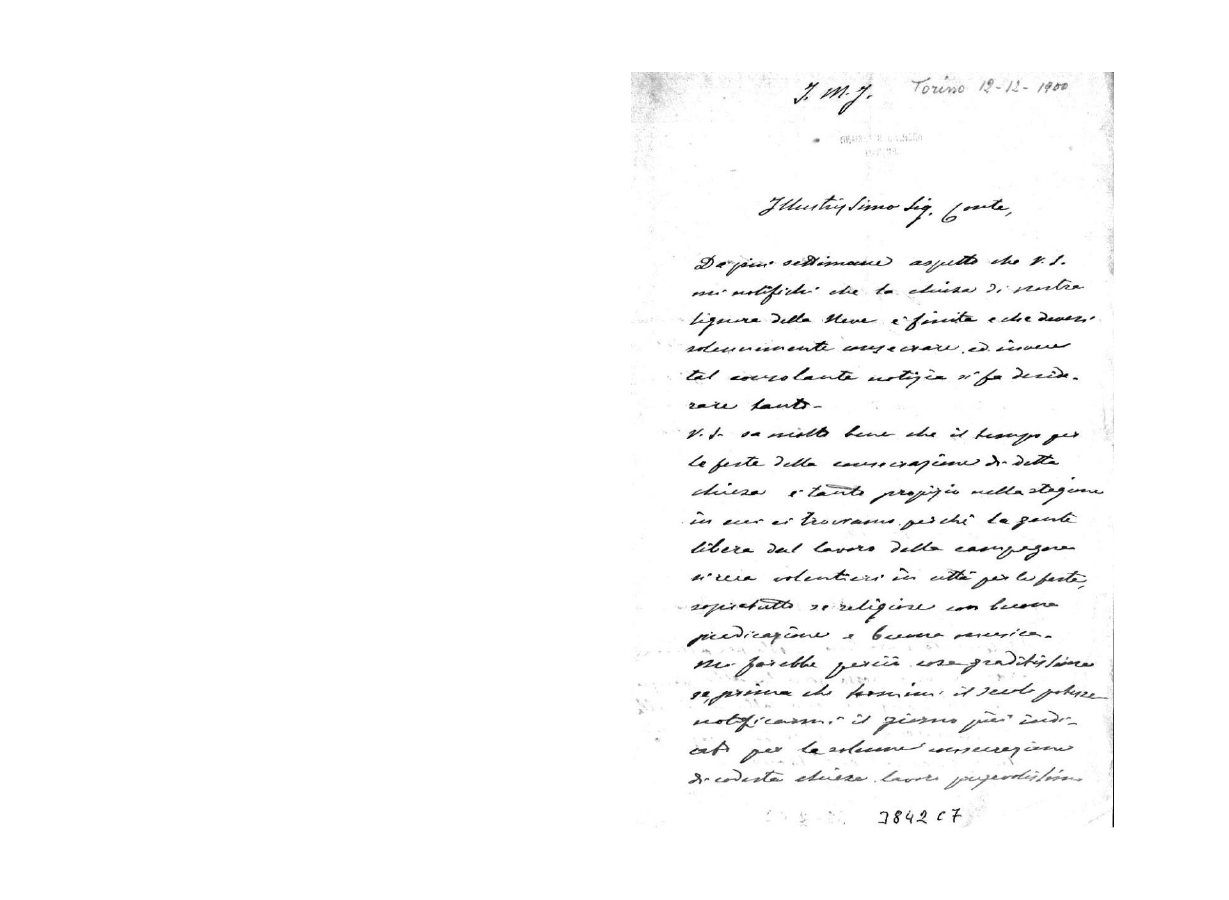 J. M. J. Torino 12-12-1900
Illustrissimo Sig. Conte,
Da più settimane aspetto che V. S.
mi notifichi che la chiesa di nostra
Signora della Neve è finita e che devesi
solennemente consecrare ed invece
tal consolante notizia si fa deside-
rare tanto-
V. S. sa molto bene che il tempo per
le feste della consecrazione di detta
chiesa è tanto propizio nella stagione
in cui ci troviamo perchè la gente
libera dal lavoro della campagna
si reca volentieri in città per le feste,
sopratutto se religiose con buona
predicazione e buona musica.
Mi farebbe perciò cosa graditissima
se, prima che termini il secolo potesse
notificarmi il giorno più indi-
cato per la solenne consecrazione
di codesta chiesa lavoro
3842 C7